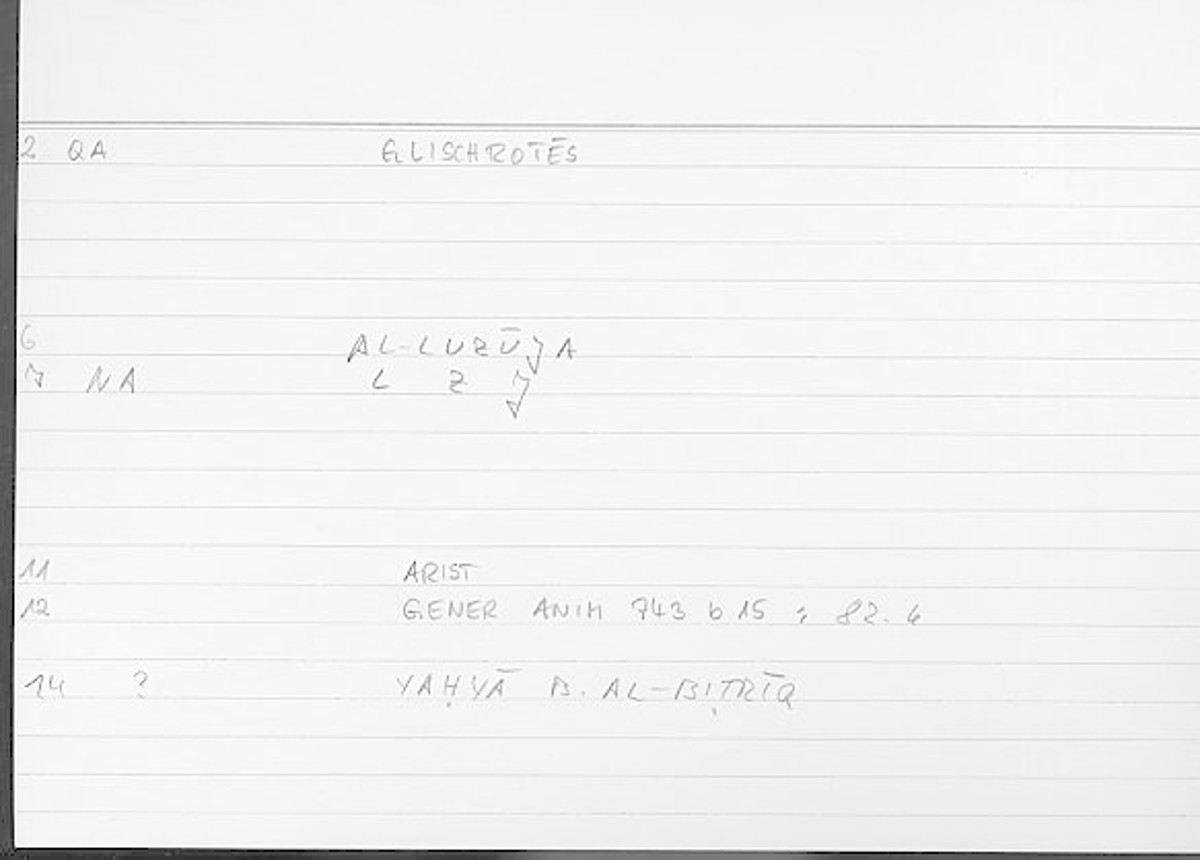 2 QA GLISCHROTĒS
6 AL-LUZŪJA
7 NA L Z J
11 ARIST
12 GENER ANIM 743 b 15 ; 82.6
14 ? YAḤYĀ B. AL-BIṬRĪQ